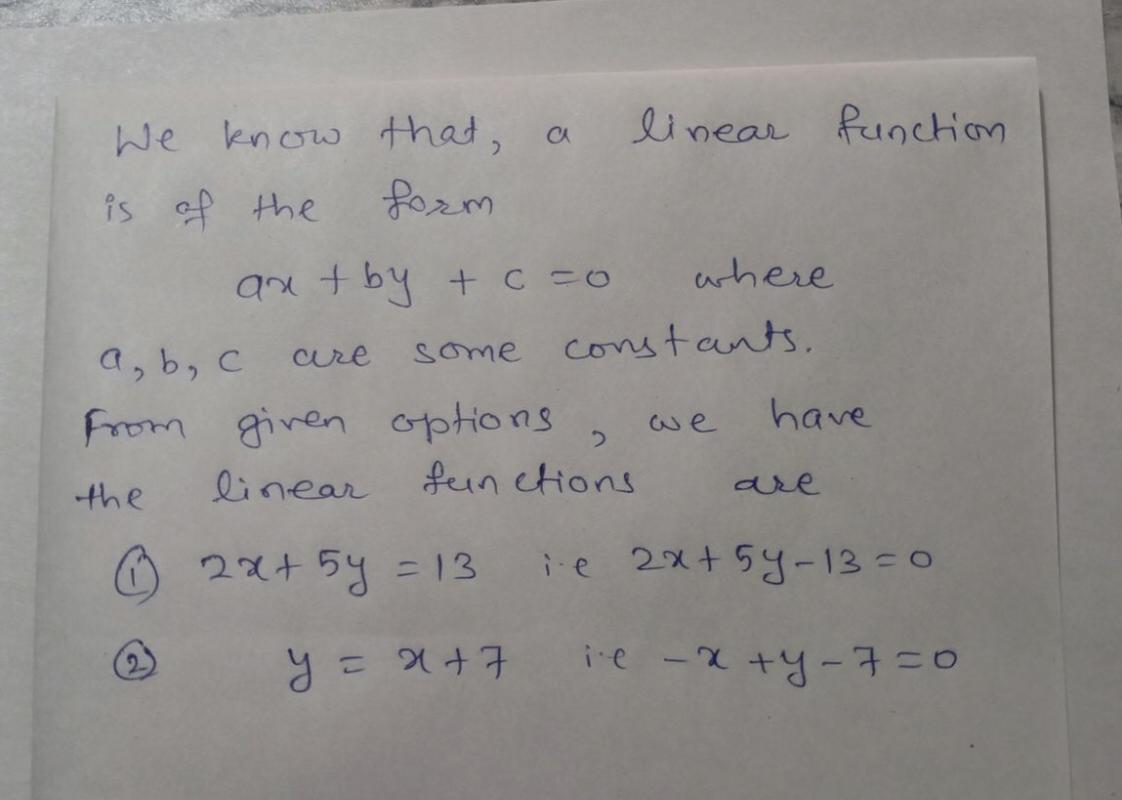 We know that, a linear function
is of the form
ax + by + c = 0 where
a, b, c are some constants.
From given options, we have
the linear functions are
① 2x + 5y = 13 i.e 2x + 5y - 13 = 0
② y = x + 7 i.e -x + y - 7 = 0